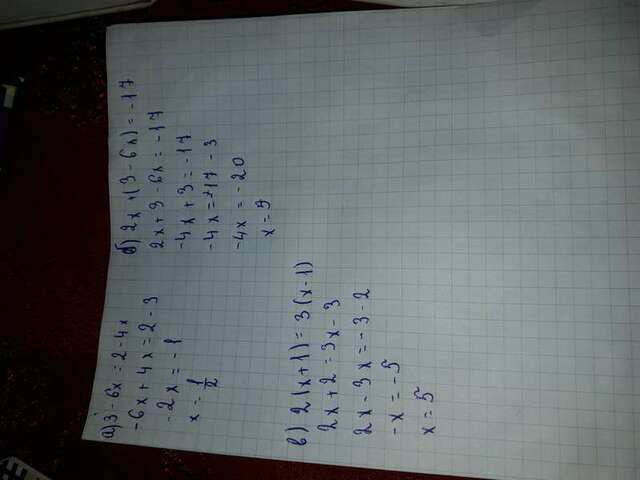 а) 3 - 6x = 2 - 4x
-6x + 4x = 2 - 3
-2x = -1
x = 1/2
б) 2x + (3 - 6x) = -17
2x + 3 - 6x = -17
-4x + 3 = -17
-4x = -17 - 3
-4x = -20
x = 5
в) 2(x+1) = 3(x-1)
2x + 2 = 3x - 3
2x - 3x = -3 - 2
-x = -5
x = 5